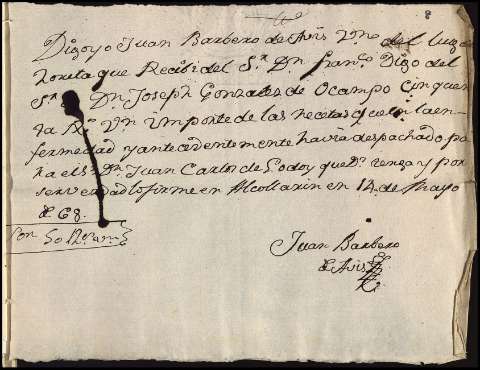 8
Digo yo Juan Barbero de Avis Vno. del lugr. de
Zorita que Recibi del Sr. Dn. Franco. Digo del
Sr. Dn. Joseph Gonzales de Ocampo cinquen
ta Rs. Vn. importe de las recetas q en la en
fermedad y antecedentemente havia despachado pa
ra el Sr. Dn. Juan Carlos de Godoy que D. tenga y por
ser verdad lo firme en Alcollarin en 14 de Mayo
de 68.
Son 50 Rs
Juan Barbero
de Avis